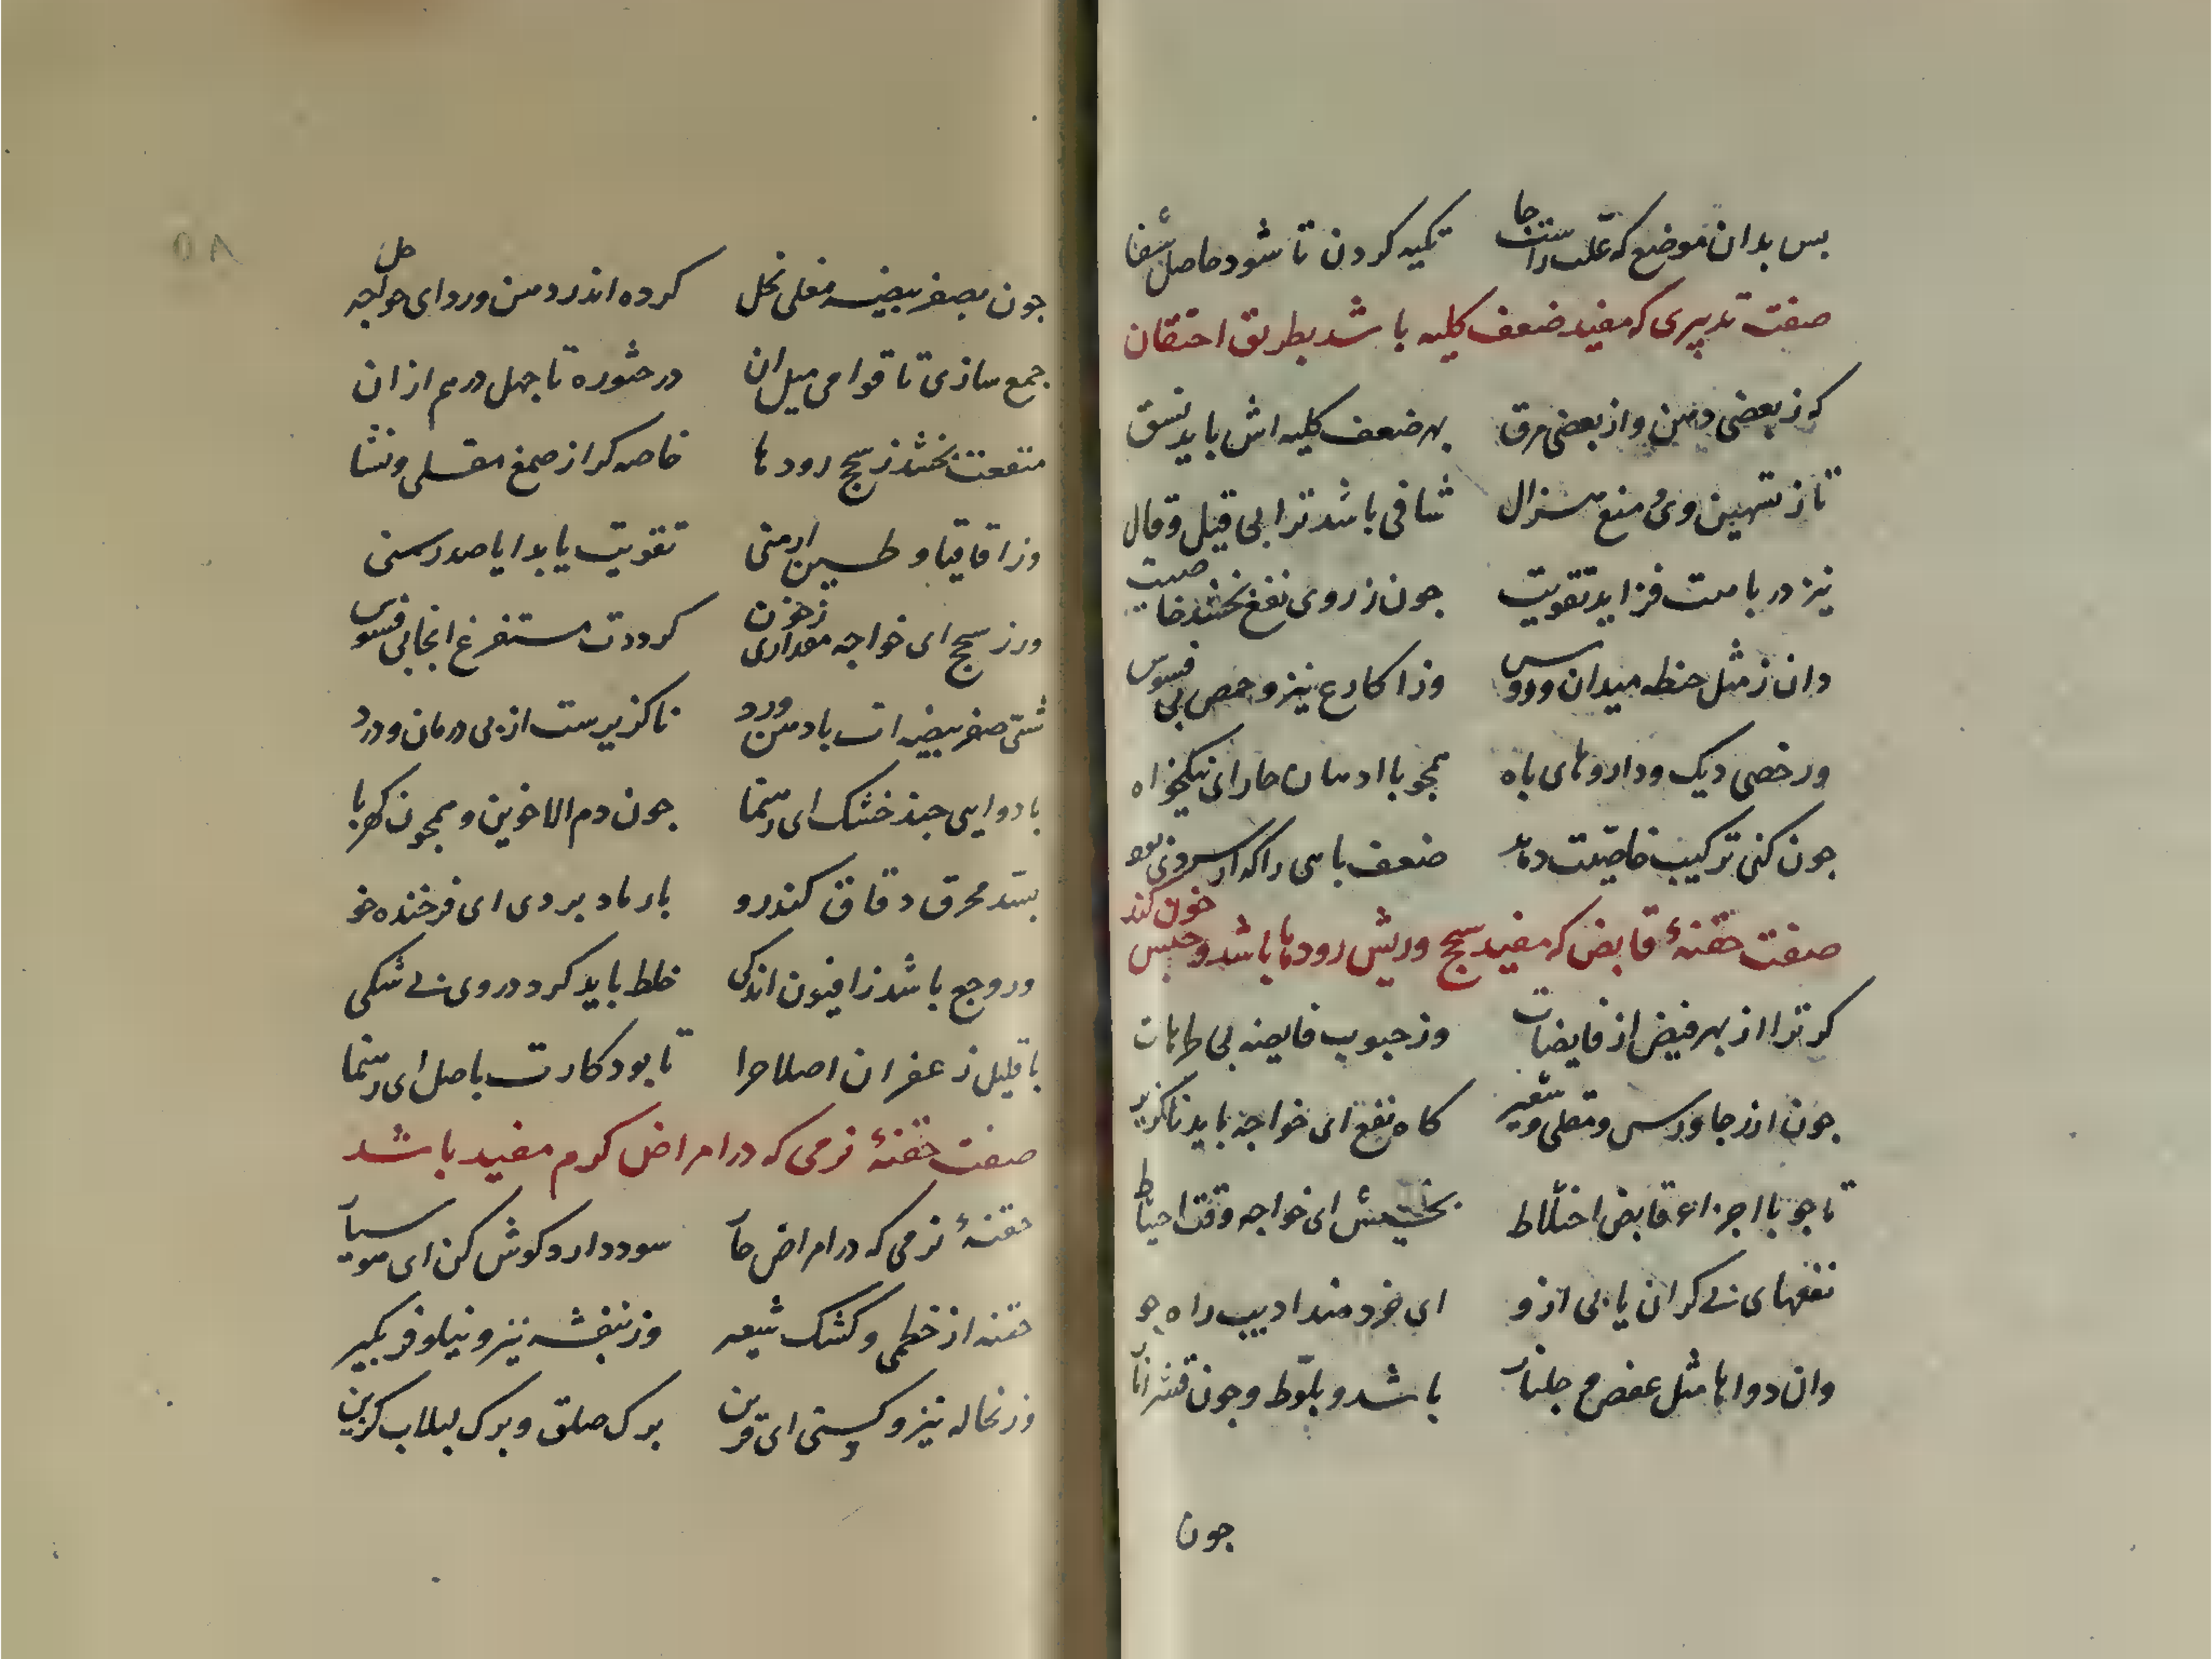 بس بدان موضع که علت راست جا تکیه کردن تا شود حاصل شفا
صفت تدبیری که مفید ضعف کلیه باشد بطریق احتقان
که ز بعضی دهن و از بعضی مرق بهر ضعف کلیه اش باید نسق
تا ز تسهین وی منع هزال شافی باشد ترا بی قیل و قال
نیز در باهت فزاید تقویت جون ز روی نفع بخشد خاصیت
دان ز مثل حنطه میدان و روس وز اکارع نیز و حمص بی فسوس
ور خصی دیک و داروهای باه همجو با ادهان حار ای نیکخواه
جون کنی ترکیب خاصیت دهد ضعف باهی را که از سردی بود
صفت حقنهٔ قابض که مفید سحج و ریش رودها باشد و حبس خون کند
کر ترا از بهر قبض از قابضات وز حبوب قابضه بی طرهات
جون ارز جاورس و مقلی و شعیر کاه نفع ای خواجه باید ناکزیر
تا جو با اجزاء قابض اختلاط بخشیش ای خواجه وقت احتیاط
نفعهای بی کران یابی ازو ای خردمند ادیب راه جو
وان دواها مثل عفص و جلنار باشد و بلوط و جون قشر انار
جون
جون بصفر بیضه مغلی نحل کرده اندر دهن ورد ای خواجه حل
جمع سازی تا قوامی میل ان در حشوره تا جهل درهم از ان
منفعت بخشد ز سحج رودها خاصه کر از صمغ مقلی و نشا
وز اقاقیا و طین ارمنی تقویت یابد ایا صدر سنی
ور ز سحج ای خواجه مقداری ز خون کرددت مستفرغ انجا بی فسوس
شتی صفر بیضه ات با دهن ورد ناکزیرست از بی درمان و درد
با دوایی جند خشک ای رهنما جون دم الاخوین و همجون کهربا
بسد محرق دقاق کندرو بار ماد بردی ای فرخنده خو
ور وجع باشد ز افیون اندکی خلط باید کرد در وی بی شکی
با قلیل زعفران اصلاح را تا بود کارت باصل ای رهنما
صفت حقنهٔ نرمی که در امراض کرم مفید باشد
حقنهٔ نرمی که در امراض حار سود دارد کوش کن ای هوسیار
حقنه از خطمی و کشک شعیر وز بنفشه نیز و نیلوفر بکیر
وز نخاله نیز و کسنی ای قرین برک صلق و برک لبلاب کزین